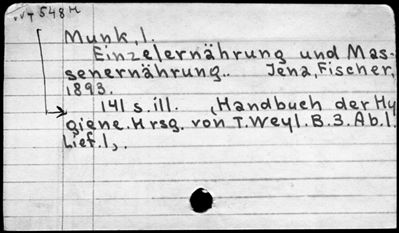 548 M
Munk, I.
Einzelernährung und Mas-
senernährung.. Jena, Fischer,
1893.
141 s. ill. (Handbuch der Hy
giene. Hrsg. von T. Weyl. B. 3. Ab. 1.
Lief. 1,.